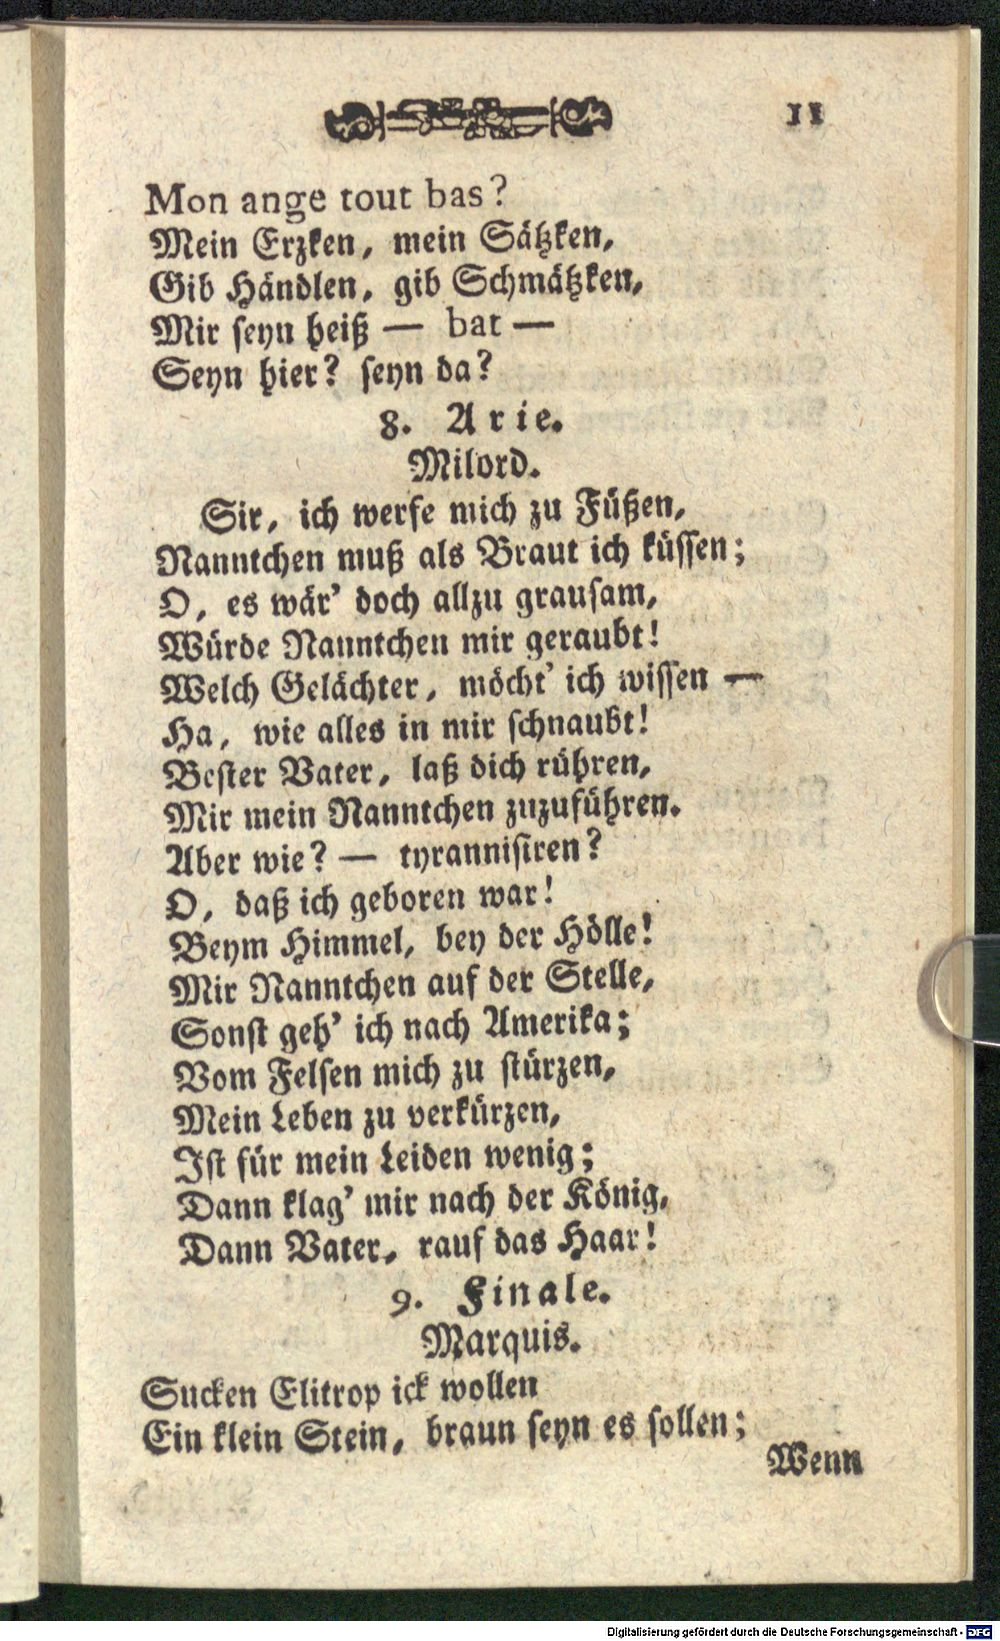 11
Mon ange tout bas?
Mein Erzken, mein Sätzken,
Gib Händlen, gib Schmätzken,
Mir seyn heiß — bat —
Seyn hier? seyn da?
8. Arie.
Milord.
Sir, ich werfe mich zu Füßen,
Nanntchen muß als Braut ich küssen;
O, es wär' doch allzu grausam,
Würde Nanntchen mir geraubt!
Welch Gelächter, möcht' ich wissen —
Ha, wie alles in mir schnaubt!
Bester Vater, laß dich rühren,
Mir mein Nanntchen zuzuführen.
Aber wie? — tyrannisiren?
O, daß ich geboren war!
Beym Himmel, bey der Hölle!
Mir Nanntchen auf der Stelle,
Sonst geh' ich nach Amerika;
Vom Felsen mich zu stürzen,
Mein Leben zu verkürzen,
Ist für mein Leiden wenig;
Dann klag' mir nach der König,
Dann Vater, rauf das Haar!
9. Finale.
Marquis.
Sucken Elitrop ick wollen
Ein klein Stein, braun seyn es sollen;
Wenn
Digitalisierung gefördert durch die Deutsche Forschungsgemeinschaft - DFG